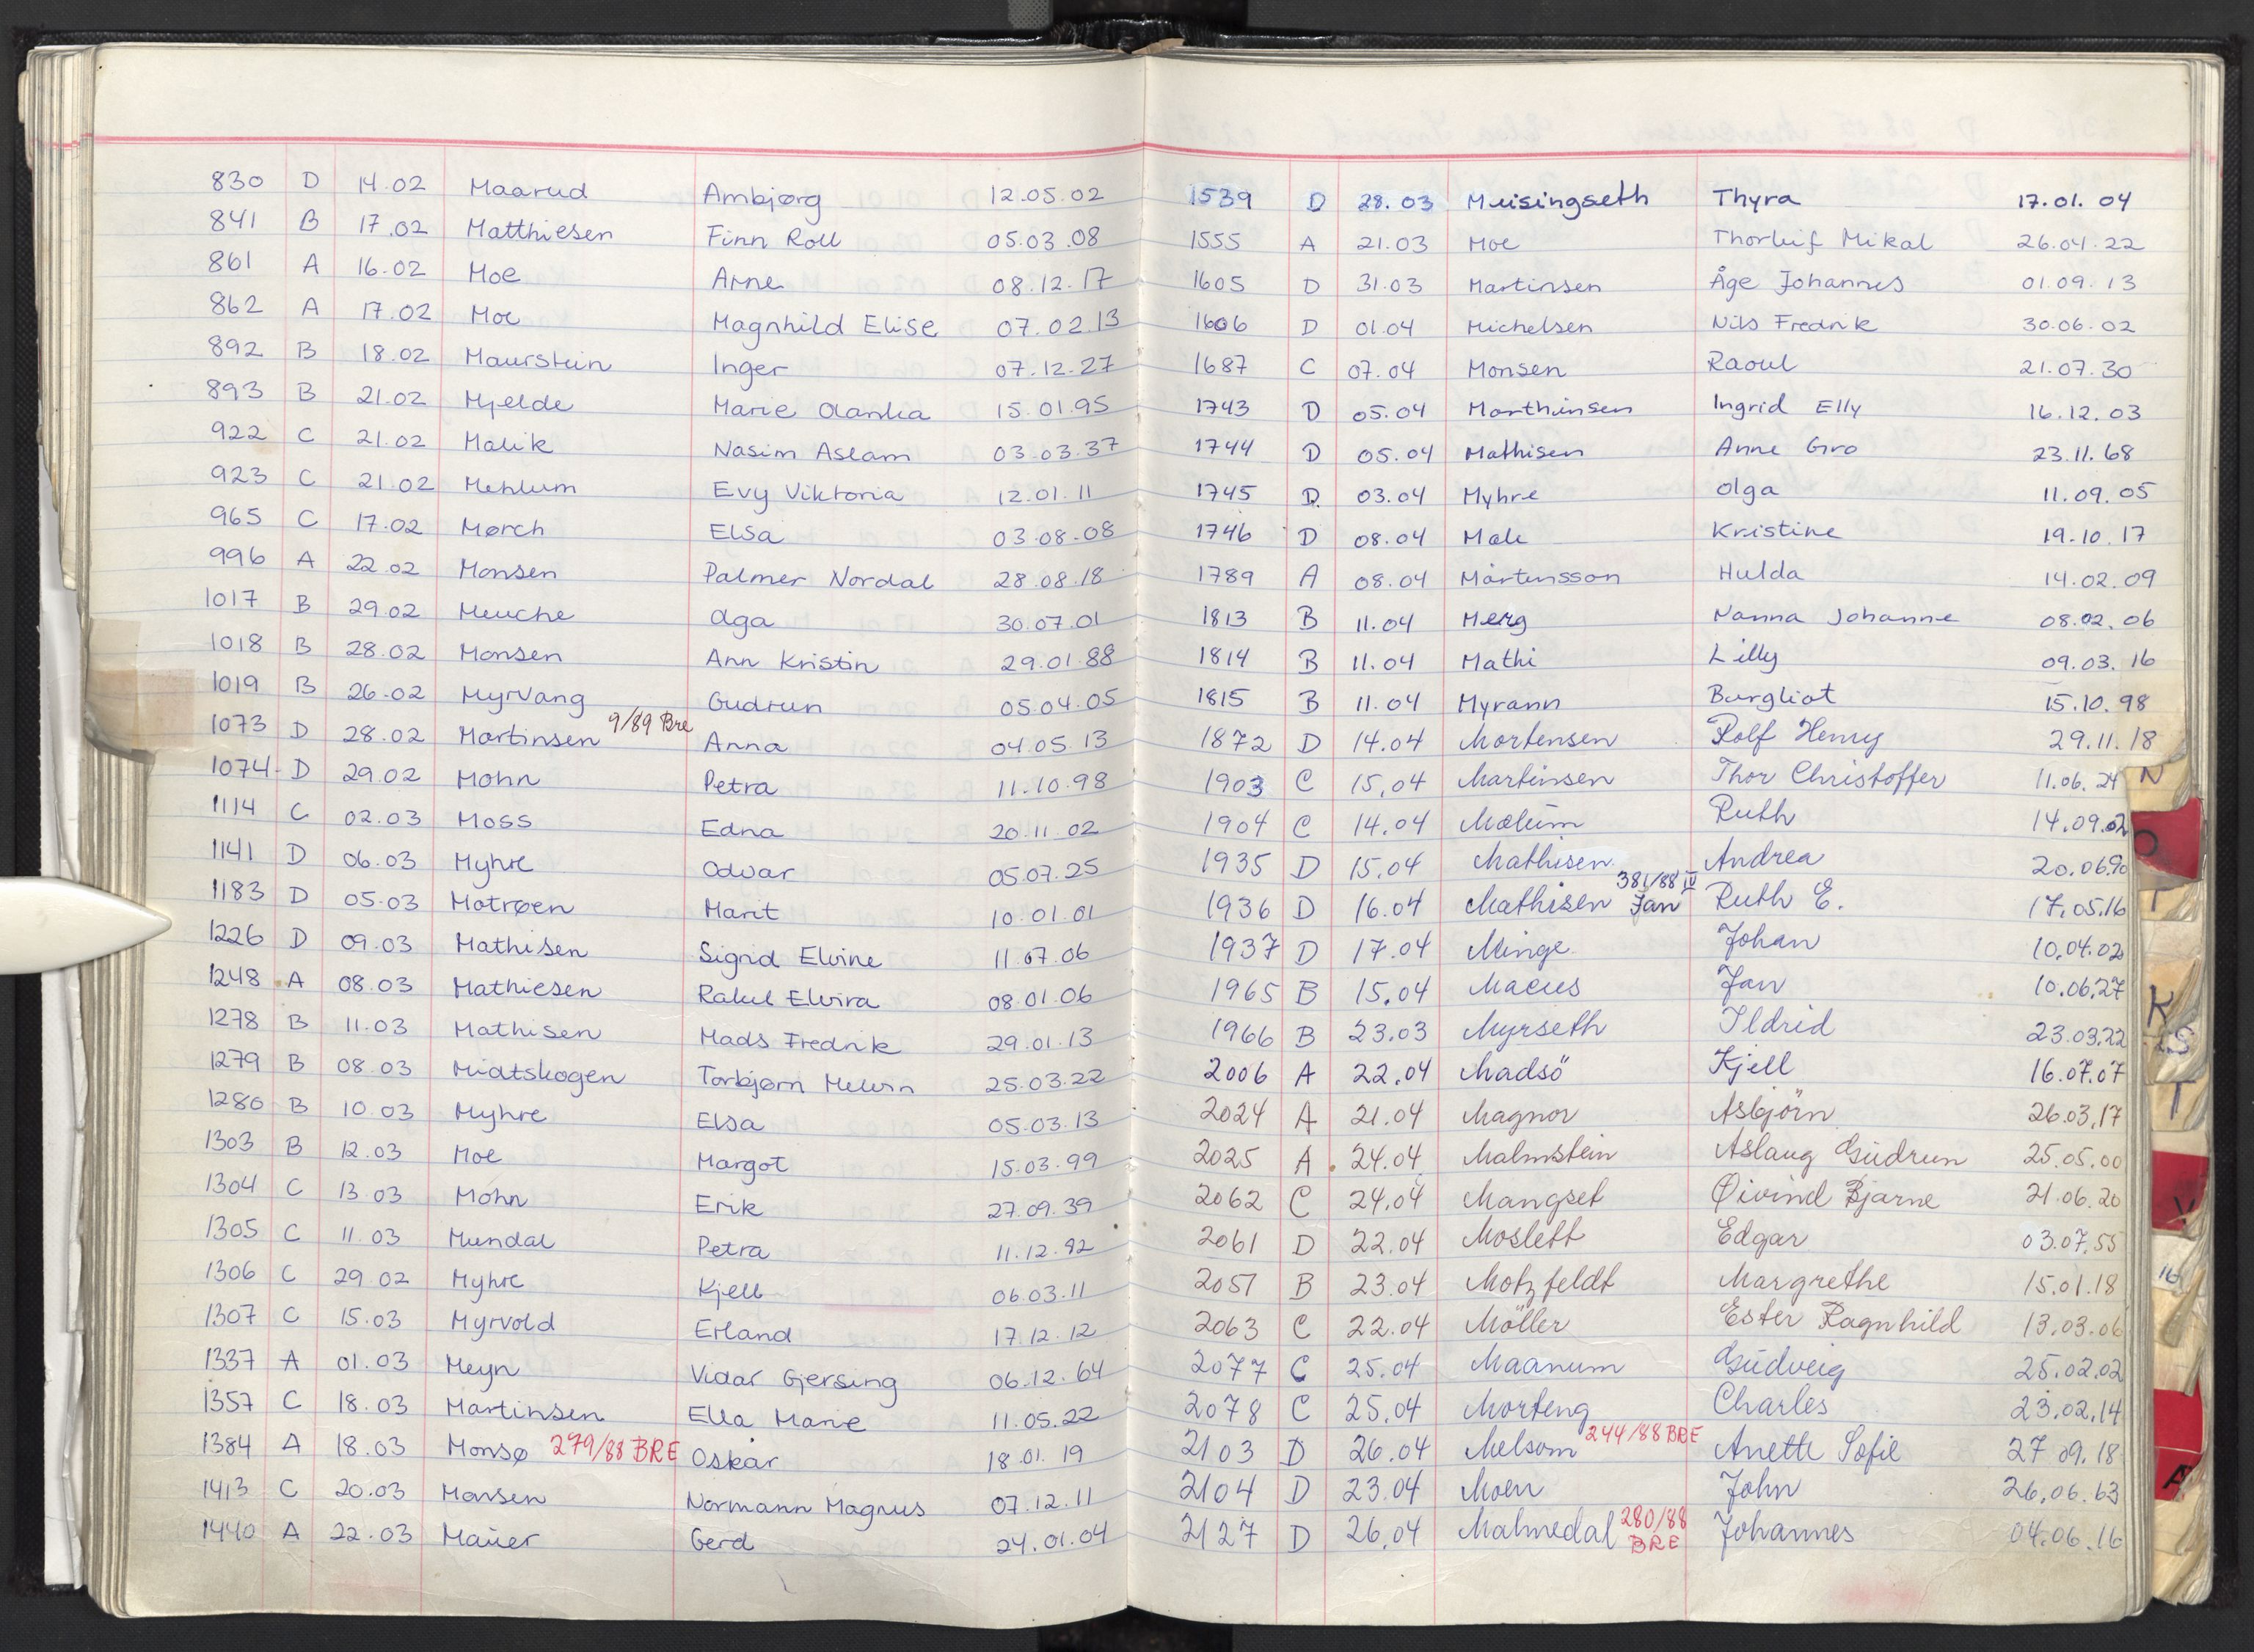 830 D 14.02 Maarud Ambjørg 12.05.02
841 B 17.02 Matthiesen Finn Roll 05.03.08
861 A 16.02 Moe Arne 08.12.17
862 A 17.02 Moe Magnhild Elise 07.02.13
892 B 18.02 Maurstein Inger 07.12.27
893 B 21.02 Mjelde Marie Olanka 15.01.95
922 C 21.02 Malik Nasim Aslam 03.03.37
923 C 21.02 Mehlum Evy Viktoria 12.01.11
965 C 17.02 Mørch Elsa 03.08.08
996 A 22.02 Monsen Palmer Nordal 28.08.18
1017 B 29.02 Meuche Olga 30.07.01
1018 B 28.02 Monsen Ann Kristin 29.01.88
1019 B 26.02 Myrvang Gudrun 05.04.05
1073 D 28.02 Martinsen 9/89 Bre Anna 04.05.13
1074 D 29.02 Mohn Petra 11.10.98
1114 C 02.03 Moss Edna 20.11.02
1141 D 06.03 Myhre Odvar 05.07.25
1183 D 05.03 Motrøen Marit 10.01.01
1226 D 09.03 Mathisen Sigrid Elvine 11.07.06
1248 A 08.03 Mathiesen Rakel Elvira 08.01.06
1278 B 11.03 Mathisen Mads Fredrik 29.01.13
1279 B 08.03 Midtskogen Torbjørn Melvin 25.03.22
1280 B 10.03 Myhre Elsa 05.03.13
1303 B 12.03 Moe Margot 15.03.99
1304 C 13.03 Mohn Erik 27.09.39
1305 C 11.03 Mundal Petra 11.12.92
1306 C 29.02 Myhre Kjell 06.03.11
1307 C 15.03 Myrvold Erland 17.12.12
1337 A 01.03 Meyn Vidar Gjersing 06.12.64
1357 C 18.03 Martinsen Ella Marie 11.05.22
1384 A 18.03 Monsø 279/88 BRE Oskar 18.01.19
1413 C 20.03 Monsen Normann Magnus 07.12.11
1440 A 22.03 Maüer Gerd 24.01.04
1539 D 28.03 Meisingseth Thyra 17.01.04
1555 A 21.03 Moe Thorleif Mikal 26.04.22
1605 D 31.03 Martinsen Åge Johannes 01.09.13
1606 D 01.04 Michelsen Nils Fredrik 30.06.02
1687 C 07.04 Monsen Raoul 21.07.30
1743 D 05.04 Marthinsen Ingrid Elly 16.12.03
1744 D 05.04 Mathisen Anne Gro 23.11.68
1745 D 03.04 Myhre Olga 11.09.05
1746 D 08.04 Male Kristine 19.10.17
1789 A 08.04 Mårtensson Hulda 14.02.09
1813 B 11.04 Merg Nanna Johanne 08.02.06
1814 B 11.04 Mathi Lilly 09.03.16
1815 B 11.04 Myrann Bergliot 15.10.98
1872 D 14.04 Mortensen Rolf Henry 29.11.18
1903 C 15.04 Martinsen Thor Christoffer 11.06.24 N
1904 C 14.04 Mælum Ruth 14.09.02
1935 D 15.04 Mathisen Andrea 20.06.90
1936 D 16.04 Mathisen 381/88 IV Jan Ruth E. 17.05.16
1937 D 17.04 Minge Johan 10.04.02
1965 B 15.04 Macus Jan 10.06.27
1966 B 23.03 Myrseth Ildrid 23.03.22
2006 A 22.04 Madsö Kjell 16.07.07
2024 A 21.04 Magnor Asbjörn 26.03.17
2025 A 24.04 Malmstein Aslaug Gudrun 25.05.00
2062 C 24.04 Mangset Øivind Bjarne 21.06.20
2061 D 22.04 Moslett Edgar 03.07.55
2051 B 23.04 Motzfeldt Margrethe 15.01.18
2063 C 22.04 Möller Ester Ragnhild 13.03.06
2077 C 25.04 Maanum Gudveig 25.02.02
2078 C 25.04 Morteng Charles 23.02.14
2103 D 26.04 Melsom 244/88 BRE Anette Sofie 27.09.18
2104 D 23.04 Moen John 26.06.63
2127 D 26.04 Malmedal 280/88 BRE Johannes 04.06.16